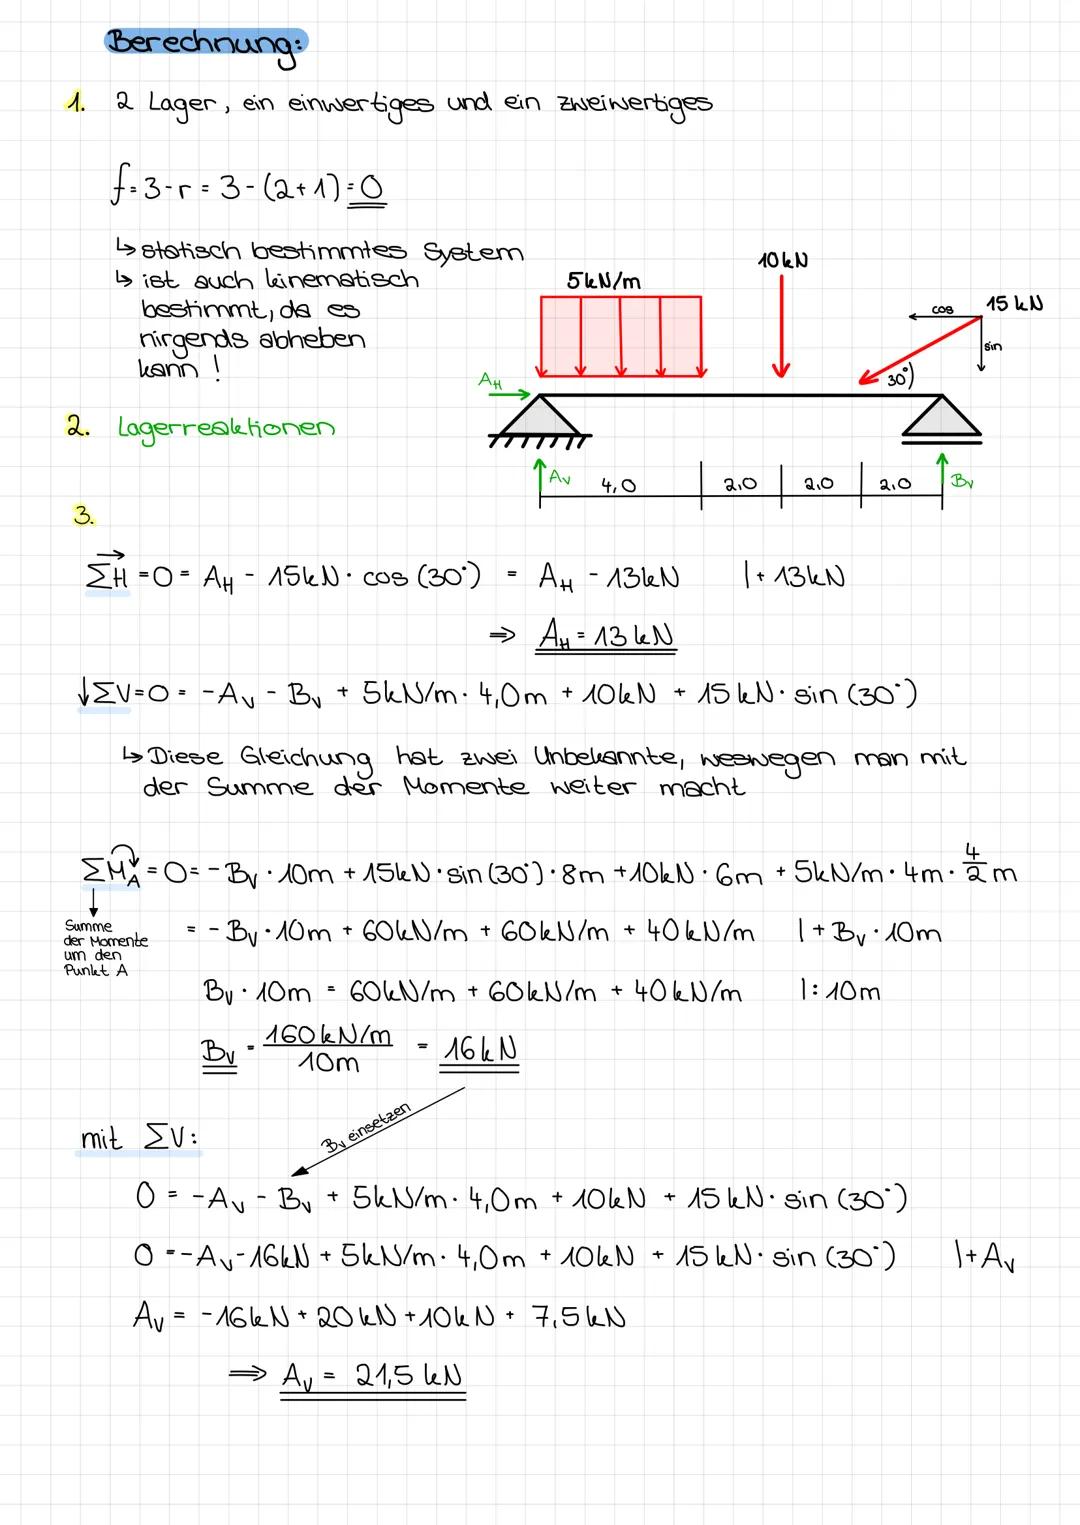 Berechnung:
1. 2 Lager, ein einwertiges und ein zweiwertiges
f = 3 - r = 3 - (2+1) = 0
↳ statisch bestimmtes System
↳ ist auch kinematisch
bestimmt, da es
nirgends abheben
kann !
5kN/m
10kN
cos
15 kN
sin
30°)
A_H
A_V
4,0
2,0
2,0
2,0
B_V
2. Lagerreaktionen
3.
ΣH = 0 = A_H - 15kN · cos (30°) = A_H - 13kN |+ 13kN
⇒ A_H = 13 kN
↓ΣV=0 = -A_V - B_V + 5kN/m · 4,0m + 10kN + 15 kN · sin (30°)
↳ Diese Gleichung hat zwei Unbekannte, weswegen man mit
der Summe der Momente weiter macht
ΣM_A = 0 = - B_V · 10m + 15kN · sin (30°) · 8m + 10kN · 6m + 5kN/m · 4m · 4/2 m
Summe
der Momente
um den
Punkt A
= - B_V · 10m + 60kN/m + 60kN/m + 40kN/m | + B_V · 10m
B_V · 10m = 60kN/m + 60kN/m + 40kN/m |: 10m
B_V = 160kN/m / 10m = 16kN
B_V einsetzen
mit ΣV:
0 = -A_V - B_V + 5kN/m · 4,0m + 10kN + 15 kN · sin (30°)
0 = -A_V - 16kN + 5kN/m · 4,0m + 10kN + 15 kN · sin (30°) |+ A_V
A_V = -16kN + 20kN + 10kN + 7,5kN
⇒ A_V = 21,5 kN